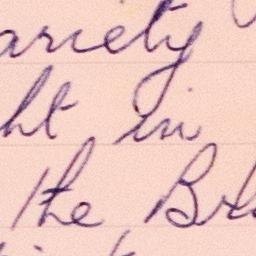 ariety
ht in
the Br